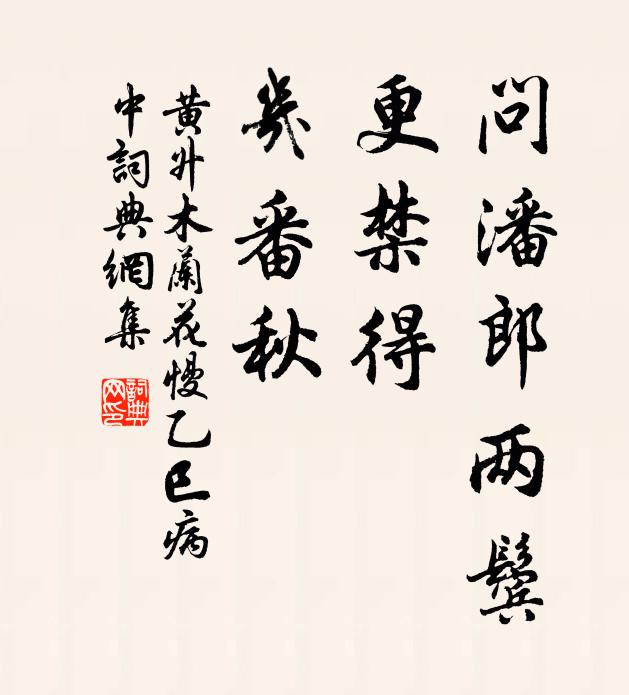 问潘郎两鬓
更禁得
几番秋
黄升木兰花慢乙巳病
中詞典網集
詞典
网印